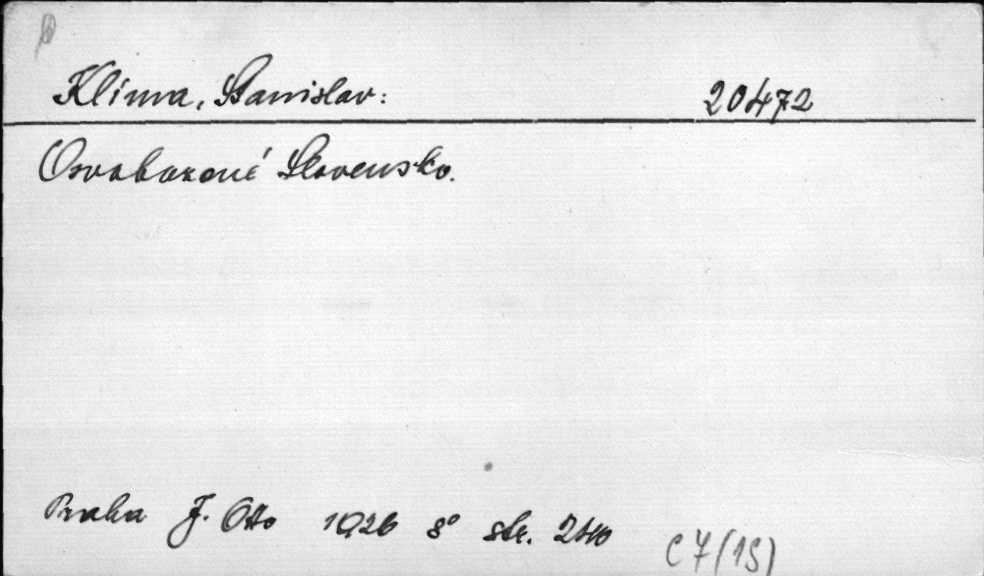 Klíma, Stanislav: 20472
Osvobozené Slovensko.
Praha J. Otto 1926 8° str. 240
C 7 (1S)